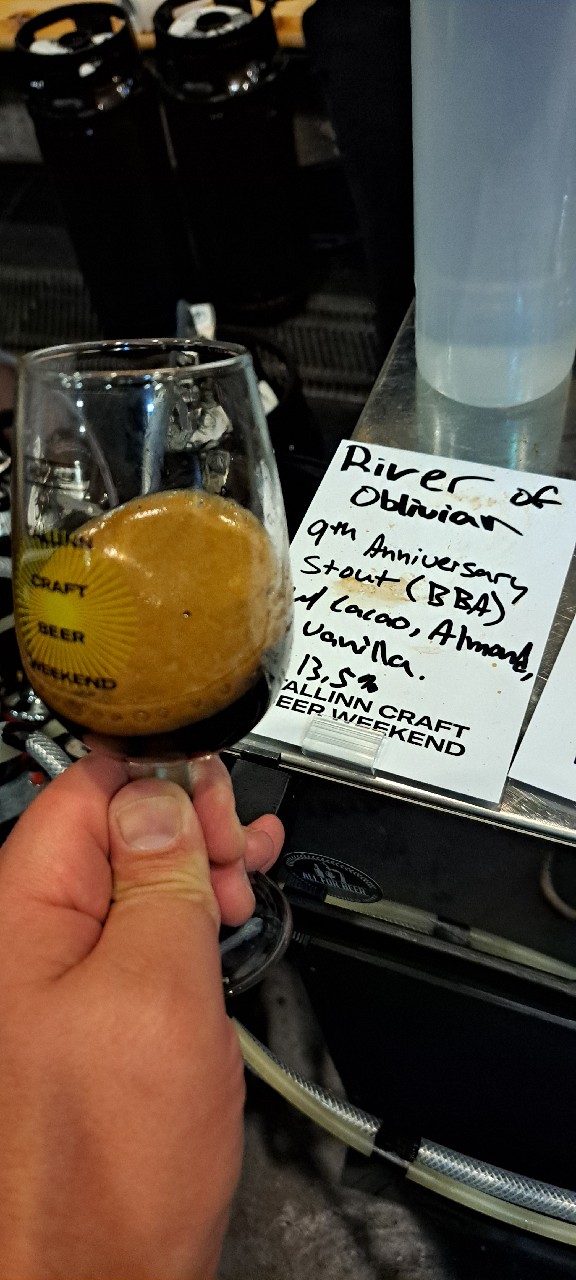 TALLINN
CRAFT
BEER
WEEKEND
River of
Oblivian
9th Anniversary
Stout (BBA)
w/ Cacao, Almond,
Vanilla.
13,5%
TALLINN CRAFT
BEER WEEKEND
ALL FOR BEER